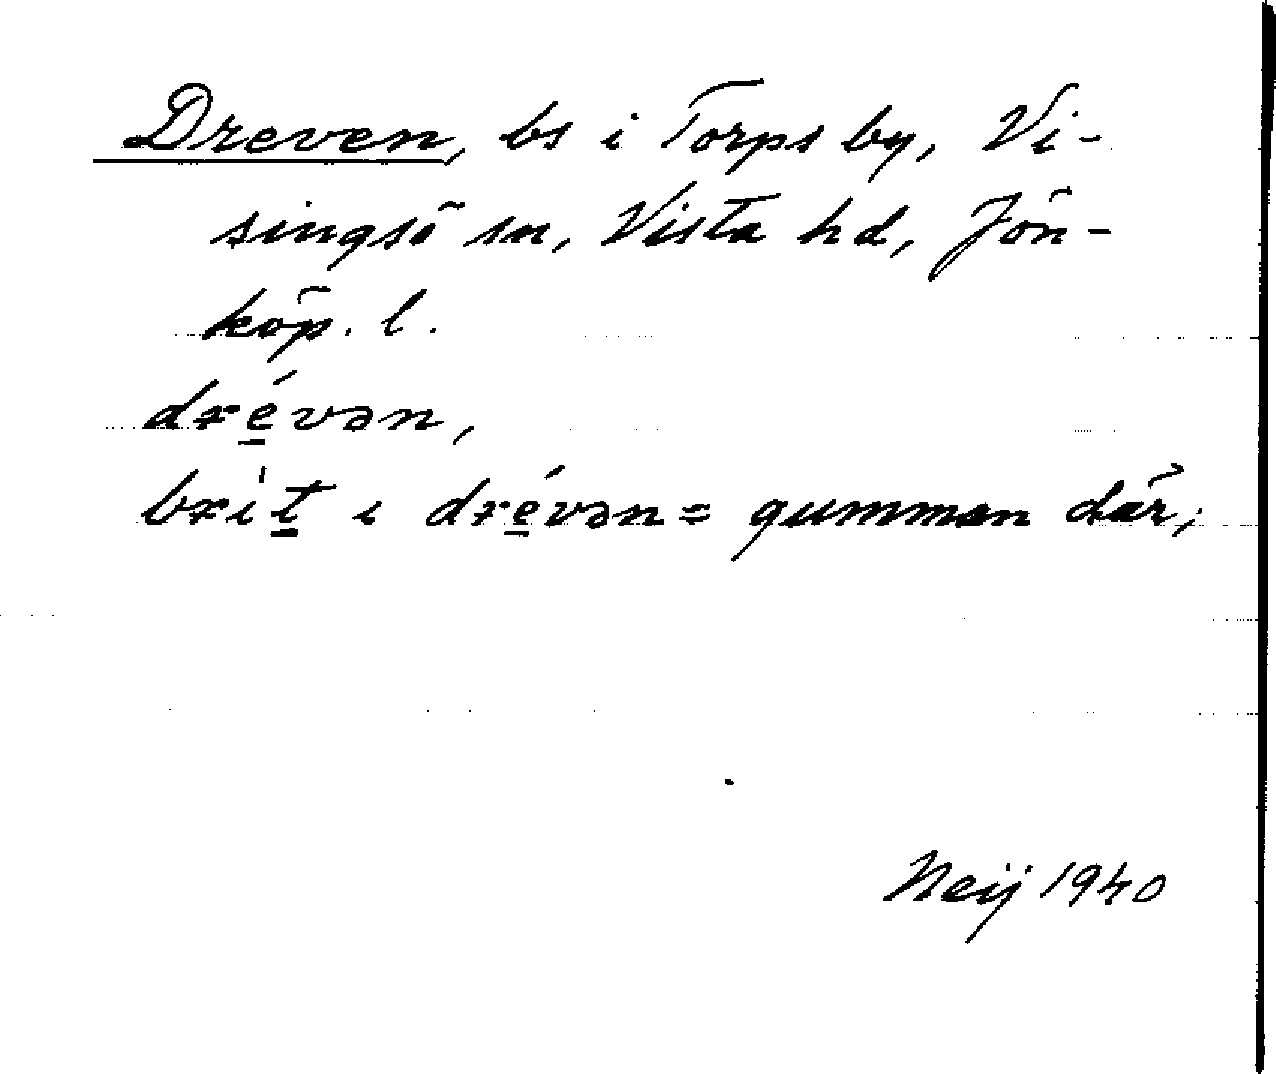 Dreven, bs i Torps by, Vi-
singsö sn, Vista hd, Jön-
köp. l.
drévən,
brit i drévən = gumman där,
Neij 1940